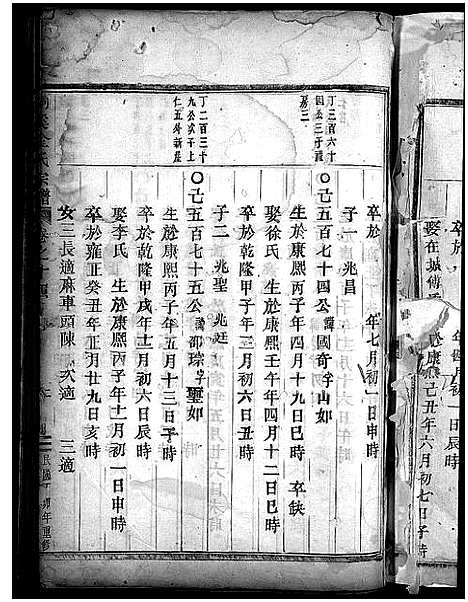 娶在城傅
康熙己丑年六月初七日子時
月初一日辰時
卒於　年七月初一日申時
子一　兆昌
丁三百六十
四公三子
房三
〇己五百七十四公諱國奇字山如
生於康熙丙子年四月十九日巳時　卒缺
娶徐氏　生於康熙壬午年四月十二日巳時
卒於乾隆甲子年三月初六日丑時
子二　兆聖　兆廷
丁二百三十
九公次子上
仁五外新屋
〇己五百七十五公諱邵琮字璽如
生於康熙丙子年五月十三日子時
卒於乾隆甲戌年十一月初六日辰時
娶李氏　生於康熙丙子年十二月初一日申時
卒於雍正癸丑年正月廿九日亥時
女三長適麻車頭陳　次適　三適
氏宗譜
民國　卯年重修